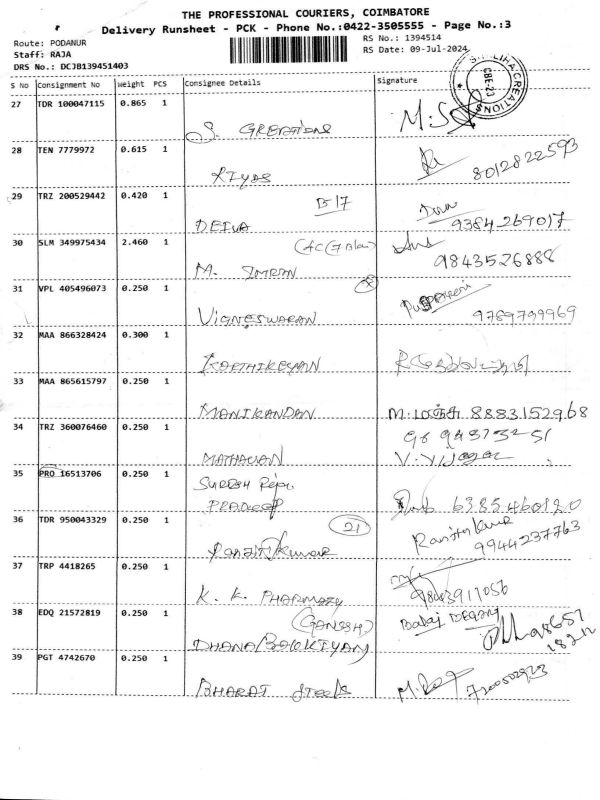 THE PROFESSIONAL COURIERS, COIMBATORE
Delivery Runsheet - PCK - Phone No.:0422-3505555 - Page No.:3
Route: PODANUR
RS No.: 1394514
Staff: RAJA
RS Date: 09-Jul-2024
DRS No.: DCJB139451403
S No Consignment No Weight PCS Consignee Details Signature
CREATIONS
27 TDR 100047115 0.865 1
S. CREATIONS
28 TEN 7779972 0.615 1
RIYAS 8012822593
29 TRZ 200529442 0.420 1
B17
DEIVA 9384269017
30 SLM 349975434 2.460 1
M. IMRAN 9843526888
31 VPL 405496073 0.250 1
VIGNESWARAN 9789799969
32 MAA 866328424 0.300 1
KARTHIKEYAN
33 MAA 865615797 0.250 1
MANIKANDAN M. மஞ்சு 8883152968
34 TRZ 360076460 0.250 1
MATHAVAN
35 PRO 16513706 0.250 1
SURESH
PRADEEP 6385460120
36 TDR 950043329 0.250 1
21
Ranjithkumar 9944237763
37 TRP 4418265 0.250 1
K. K. PHARMACY 9843911056
38 EDQ 21572819 0.250 1
(GANESH)
39 PGT 4742670 0.250 1
BHARAT Steels